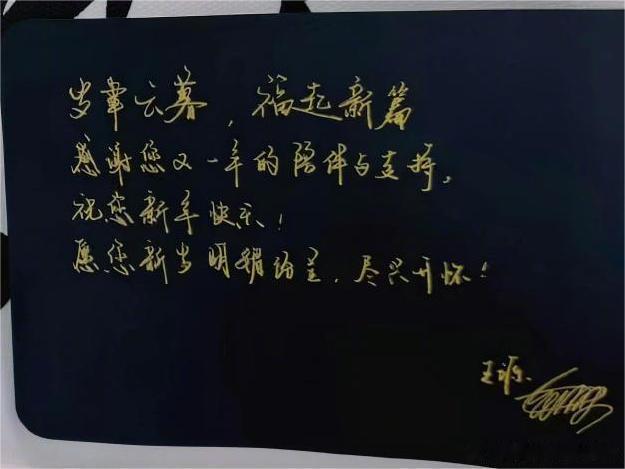 岁聿云暮，福起新篇
感谢您又一年的陪伴与支持。
祝您新年快乐！
愿您新岁明媚绚兰，尽兴开怀！
王源